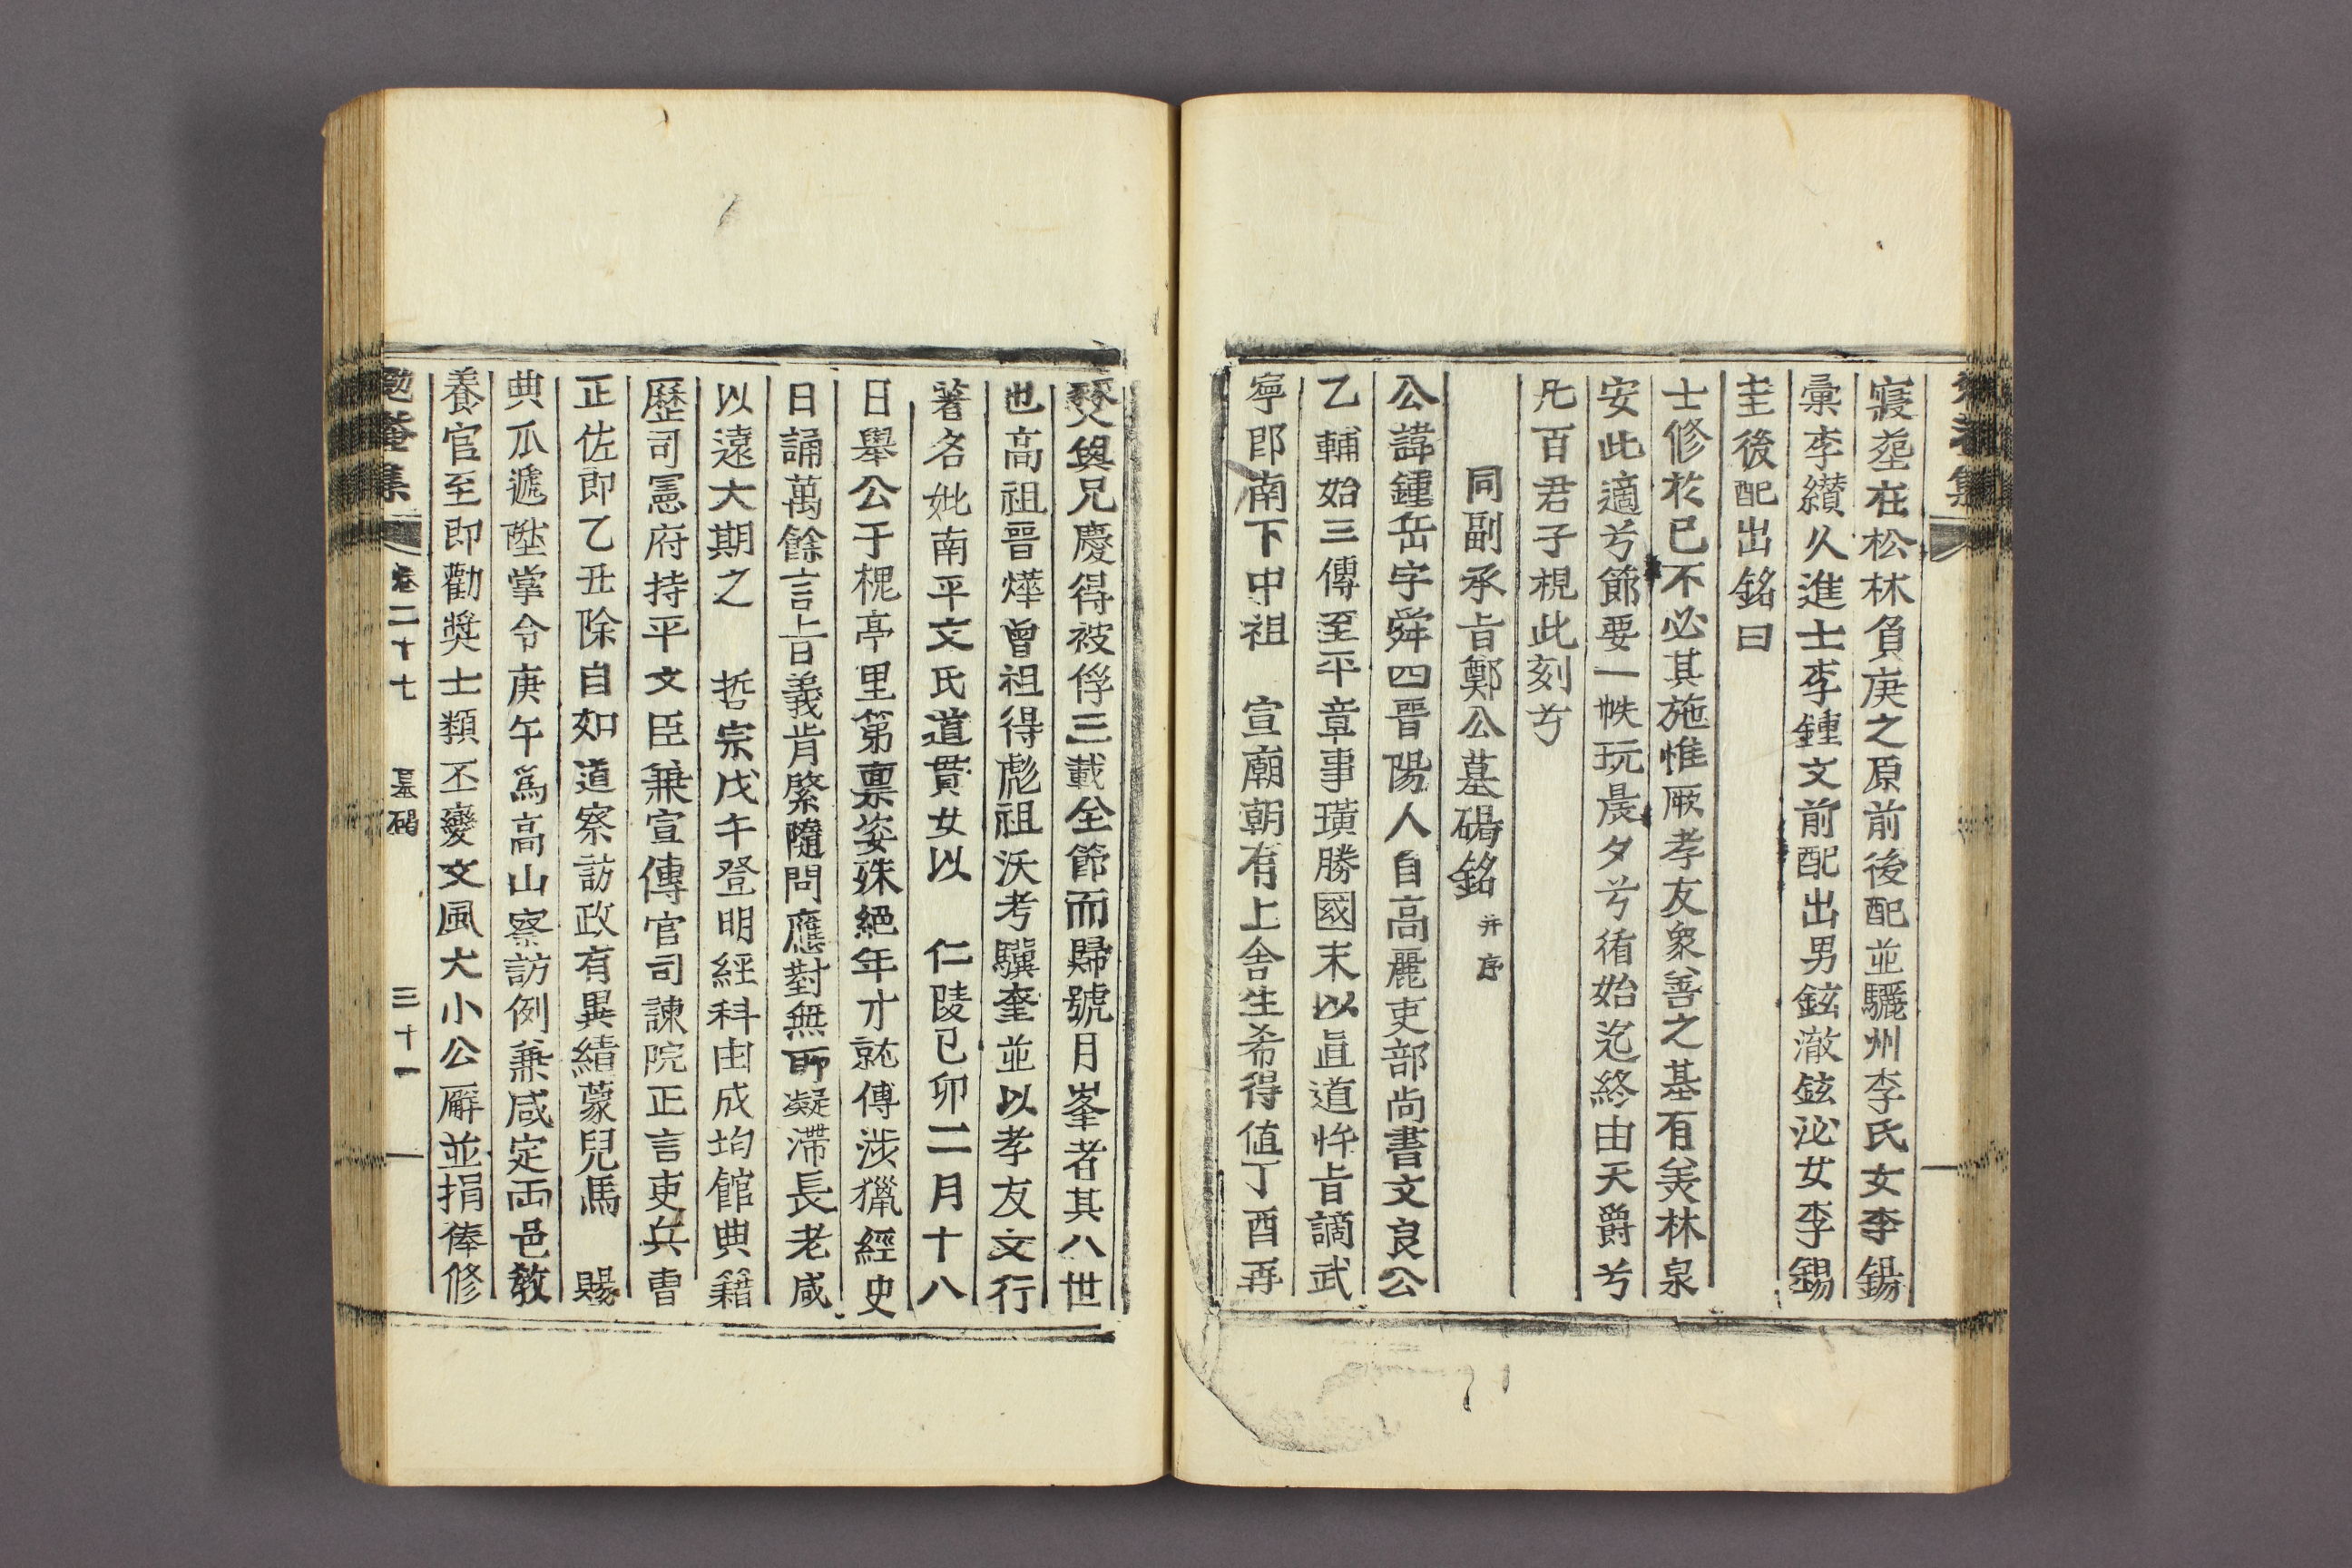 寢葬在松林負庚之原前後配並驪州李氏女李錫
彙李纘久進士李鍾文前配出男鉉澈鉉泌女李錫
圭後配出銘曰
士修於己不必其施惟厥孝友衆善之基有美林泉
安此適兮節要一帙玩晨夕兮循始迄終由天爵兮
凡百君子視此刻兮
同副承旨鄭公墓碣銘 并序
公諱鍾岳字舜四晉陽人自高麗吏部尚書文良公
乙輔始三傳至平章事璜勝國末以直道忤旨謫武
寧郎南下中祖 宣廟朝有上舍生希得値丁酉再
燹與兄慶得被俘三載全節而歸號月峯者其八世
也高祖晉燁曾祖得彪祖沃考驥奎並以孝友文行
著名妣南平文氏道貫女以 仁陵己卯二月十八
日舉公于槐亭里第稟姿殊絕年才就傅涉獵經史
日誦萬餘言旨義肯綮隨問應對無所凝滯長老咸
以遠大期之 哲宗戊午登明經科由成均館典籍
歷司憲府持平文臣兼宣傳官司諫院正言吏兵曹
正佐郎乙丑除自如道察訪政有異績蒙兒馬 賜
典瓜遞陞掌令庚午爲高山察訪例兼咸定兩邑教
養官至即勸獎士類丕變文風大小公廨並捐俸修
勉菴集 卷二十七 墓碣 三十一